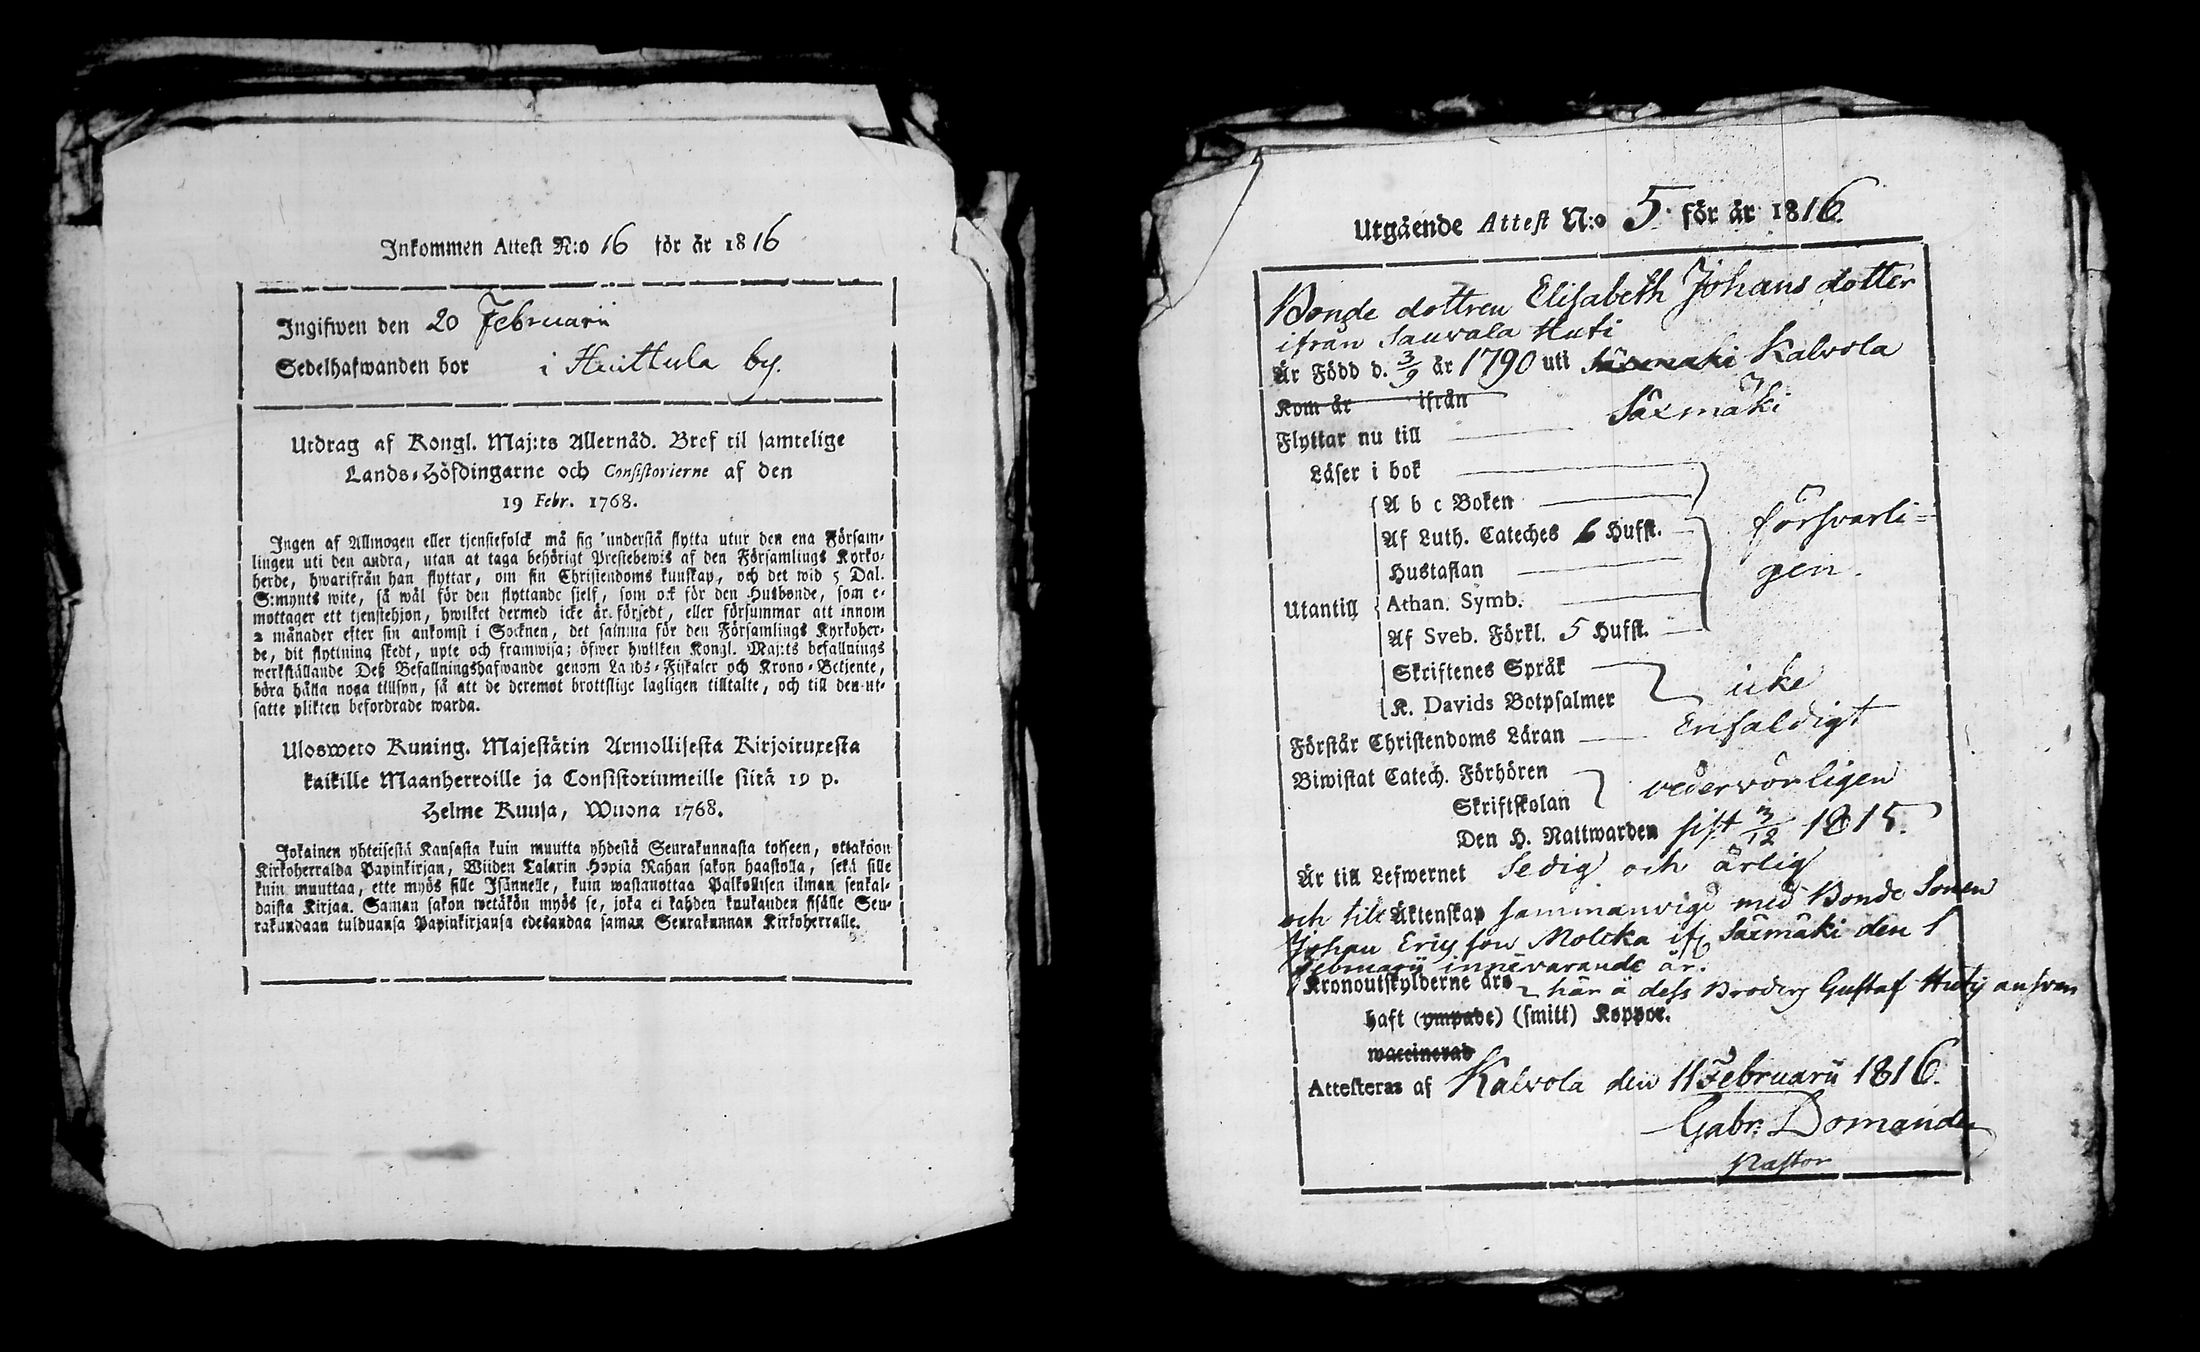 Inkommen Attest N:o 16 för år 1816
Ingifwen den 20 Februarii
Sedelhafwanden bor i Huittula by.
Utdrag af Kongl. Maj:ts Allernåd. Bref til samtelige
Lands-Höfdingarne och Consistorierne af den
19 Febr. 1768.
Ingen af Allmogen eller tjenstefolck må sig understå flytta utur den ena Försam-
lingen uti den andra, utan at taga behörigt Prestebewis af den Församlings Kyrko-
herde, hwarifrån han flyttar, om sin Christendoms kunskap, och det wid 5 Dal.
S:mynts wite, så wäl för den flyttande sjelf, som ock för den Husbonde, som e-
mottager ett tjenstehjon, hwilket dermed icke är försedt, eller försummar att innom
2 månader efter sin ankomst i Socknen, det samma för den Församlings Kyrkoher-
de, dit flyttning skedt, upte och framwisa; öfwer hwilken Kongl. Maj:ts befallnings
werkställande Deß Befallningshafwande genom Lands-Fiskaler och Krono-Betjente,
böra hålla noga tillsyn, så att de deremot brottslige lagligen tilltalte, och till den ut-
satte plikten befordrade warda.
Ulosweto Kuning. Majestätin Armollisesta Kirjoituxesta
kaikille Maanherroille ja Consistoriumeille siitä 19 p.
Helme Kuusa, Wuona 1768.
Jokainen yhteisestä Kansasta kuin muutta yhdestä Seurakunnasta toiseen, ottakoon
Kirkoherralda Papinkirjan, Wiiden Talarin Hopia Rahan sakon haastolla, sekä sille
kuin muuttaa, ette myös sille Isännelle, kuin wastanottaa Palkollisen ilman senkal-
daista Kirjaa. Saman sakon wetäkön myös se, joka ei kahden kuukauden sisälle Seu-
rakundaan tulduansa Papinkirjansa edesandaa saman Seurakunnan Kirkoherralle.
Utgående Attest N:o 5. för år 1816.
Bonde dottren Elisabeth Johans dotter
ifrån Sauvala Huti
Är Född d. 3/9 år 1790 uti Säxmäki Kalvola
Kom år ifrån
Flyttar nu till Säxmäki
Läser i bok
A b c Boken
Af Luth. Cateches 6 Hufst. försvarli=
Hustaflan gen.
Utantill Athan. Symb.
Af Sveb. Förkl. 5 Hufst.
Skriftenes Språk icke
K. Davids Botpsalmer
Förstår Christendoms Läran Enfaldigt
Biwistat Catech. Förhören vedervörligen
Skriftskolan
Den H. Nattwarden sist 3/12 1815.
Är till Lefwernet Sedig och ärlig
och till Äktenskap sammanvigd med Bonde Sonen
Johan Ericsson Moltka if. Säxmäki den 1
Februarii innevarande år.
Kronoutskylderne års här å dess Broders Gustaf Hutis ansvar
haft (ympade) (smitt) Koppor.
waccinerad
Attesteras af Kalvola den 11 Februarii 1816.
Gabr. Domander
Pastor